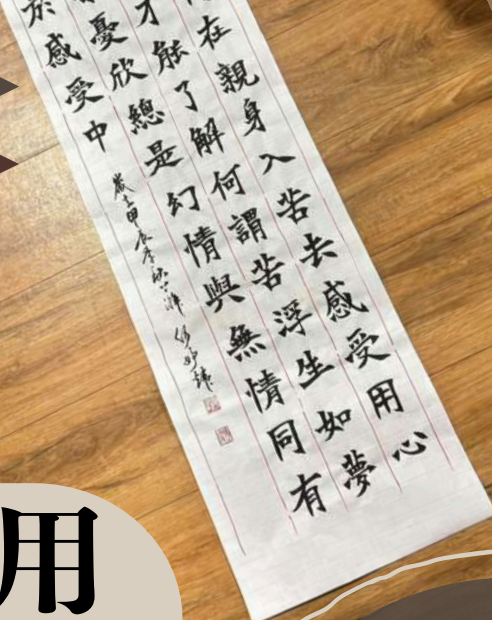 在親身入苦去感受用心
才能了解何謂苦浮生如夢
憂欣總是幻情與無情同有
於感受中
甲辰
用